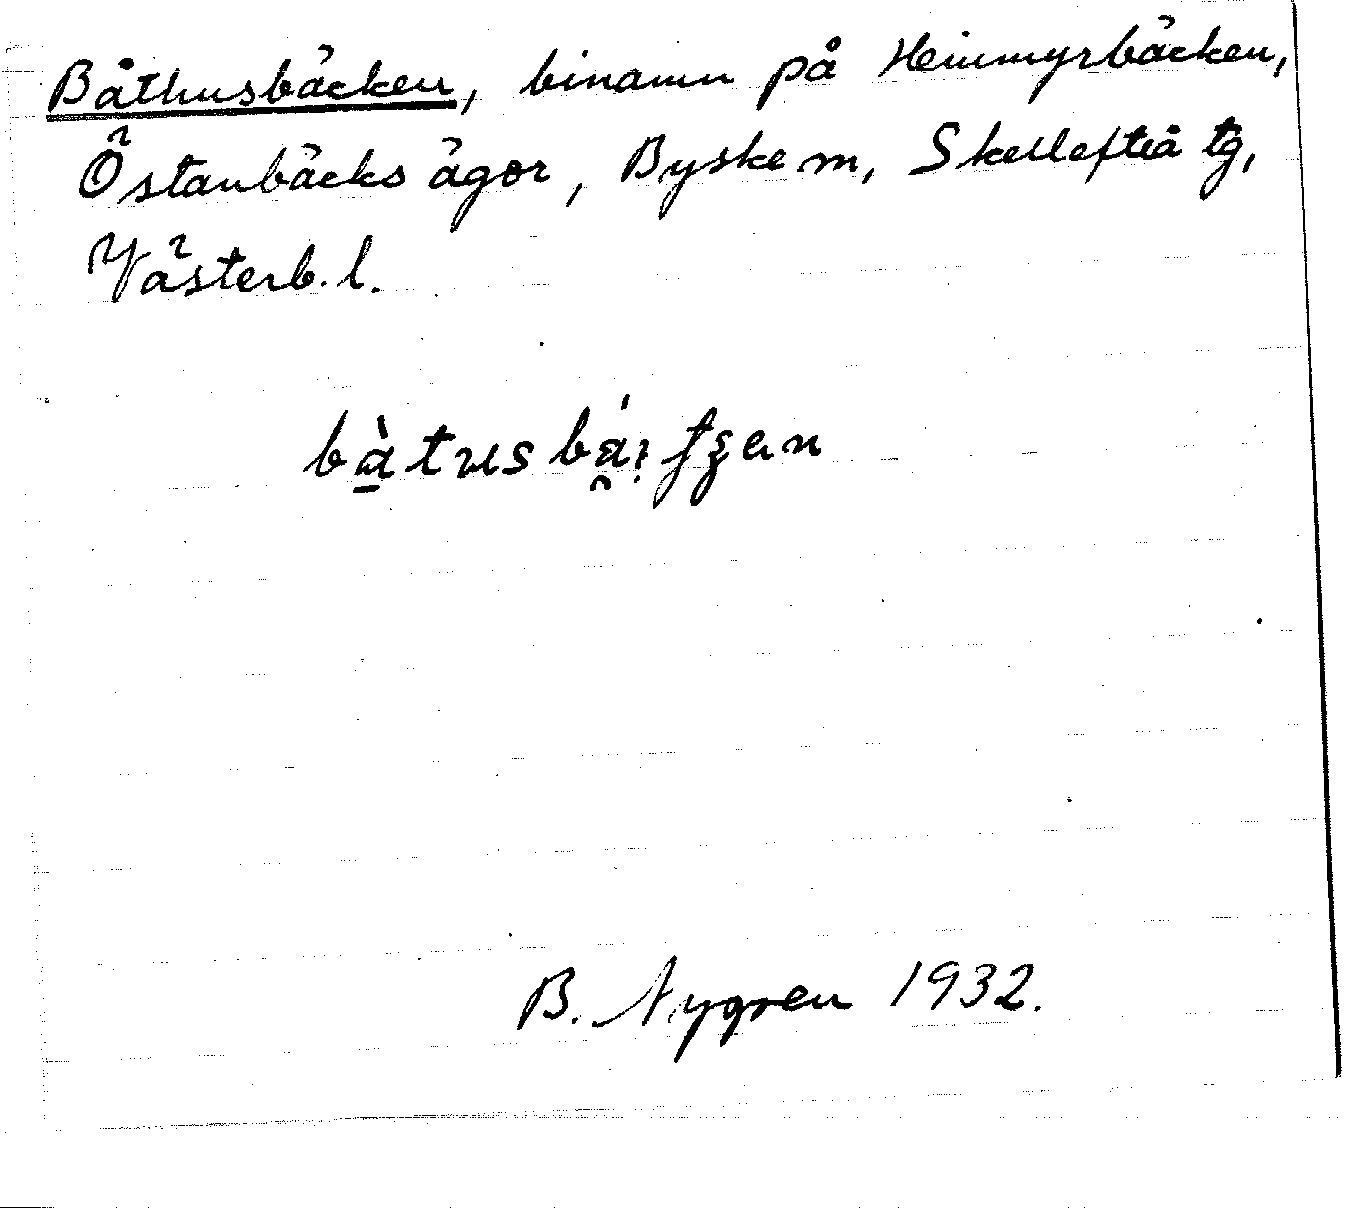 Båthusbäcken, binamn på Hemmyrbäcken,
Östanbäcks ägor, Byske sn, Skellefteå tg,
Västerb. l.
B. Nygren 1932.